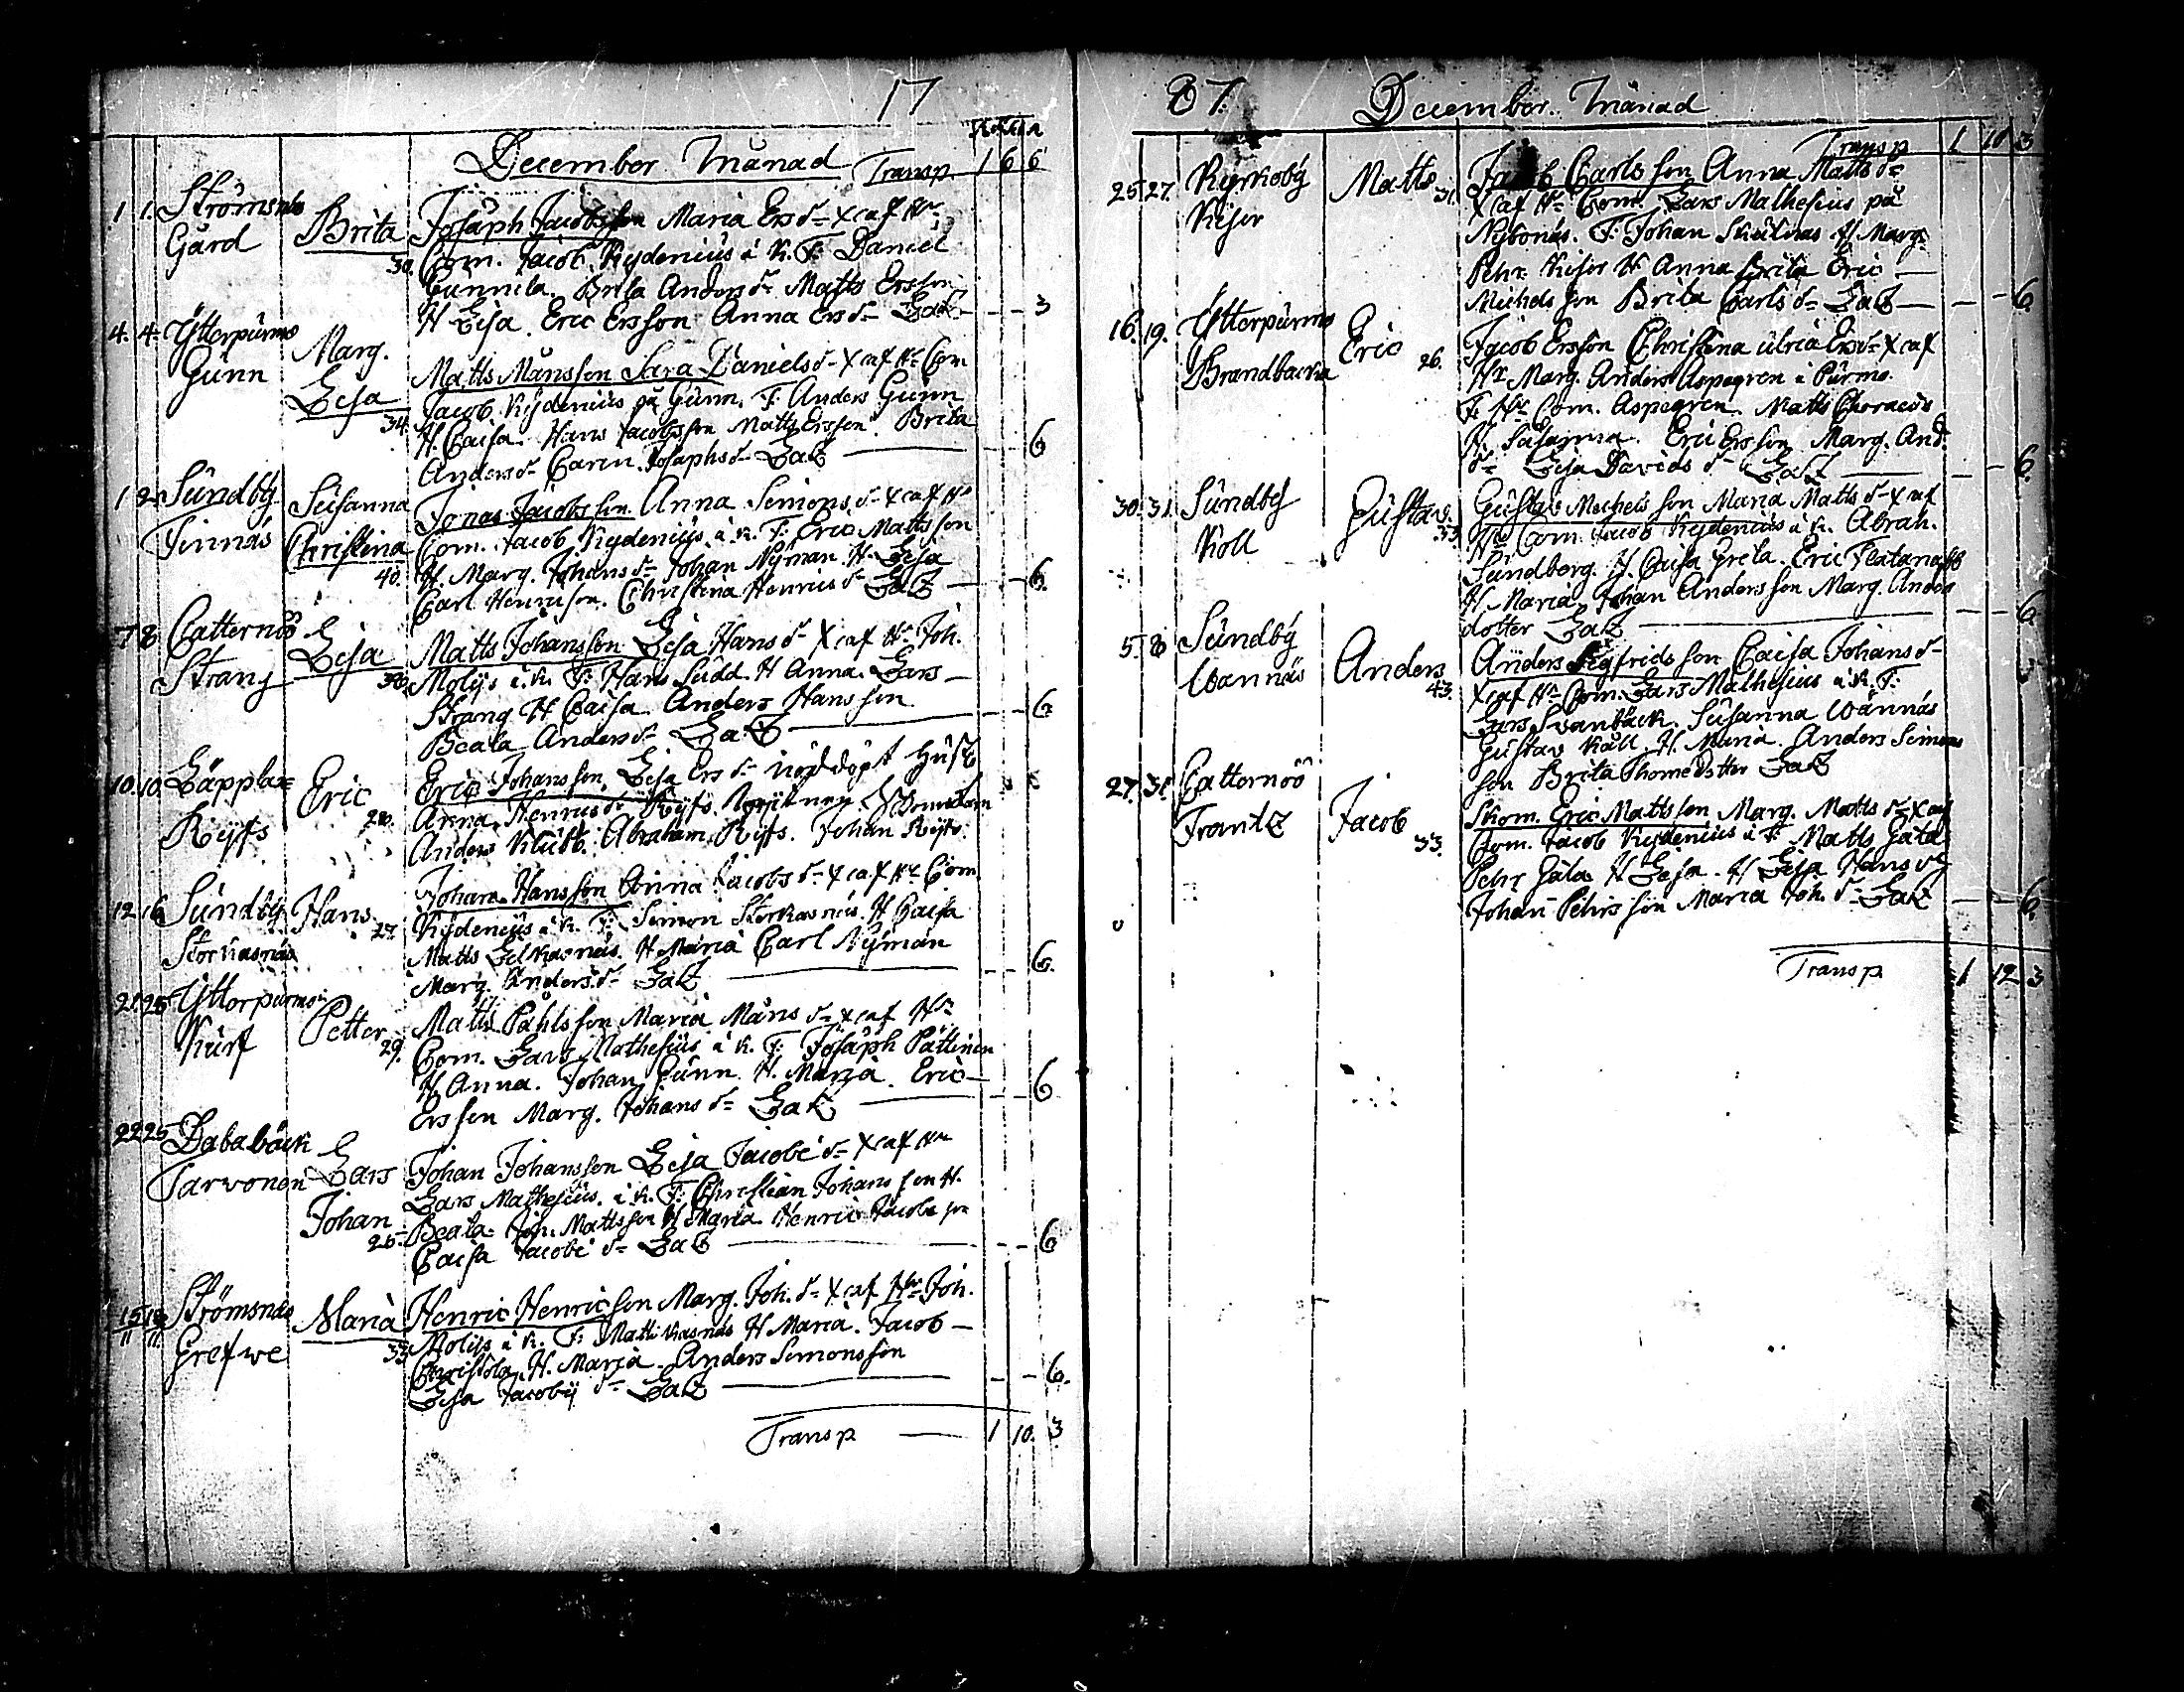 17
December Månad Transp 1 6 6
1 1. Strömsnäs Gård Brita 30.
Josaph Jacobsson Maria Ers dr X af Hr
Com. Jacob Kydenius i K. F: Daniel
Gunnila. Brita Anders dr Matts Ersson
H Lisa Eric Ersson Anna Ers dr Lat - - 3
4. 4. Ytterpurmo Gunn Marg. Lisa 34
Matts Månsson Sara Daniels dr X af Hr Com
Jacob Kydenius på Gunn. F. Anders Gunn
H. Caisa. Hans Jacobsson Matts Ersson. Brita
Anders dr Carin. Josaphs dr Lat - - 6
1 2. Sundby Finnäs Susanna Christina 40.
Jonas Jacobsson Anna Simons dr X af Hr
Com. Jacob Kydenius. i K. F: Eric Mattsson
H. Marg. Johans dr Johan Nyman. H. Lisa
Carl Henricson. Christina Henrics dr Lat - - 6.
7 8 Catternöö Strang Lisa 30.
Matts Johansson Lisa Hans dr X af Hr Joh.
Molijs i K. F: Hans Sudd. H Anna. Lars
Strang H Caisa Anders Hansson
Beata Anders dr Lat - - 6.
10. 10. Läppla= Ryss Eric 28.
Eric Johansson, Lisa Ers dr nöddöpt Hust
Anna Henrics dr Ryss.
Anders Klubb. Abraham Ryss. Johan Ryss.
12. 16. Sundby Storkasnäs Hans 27.
Johan Hansson Anna Jacobs dr X af Hr Com
Kydenius i K. F: Simon Storkasnäs. H Caisa
Matts Lillkasnäs. H Maria Carl Nyman
Marg. Anders dr Lat - - 6.
21. 25 Ytterpurmo Kurf Petter 29.
Matts Påhlsson Maria Måns dr X af Hr
Com. Lars Mathesius i K. F: Josaph Pättinen
H. Anna. Johan Gunn. H. Maria. Eric
Ersson Marg. Johans dr Lat - - 6
22 25 Lababäck Tarvonen Lars Johan 26.
Johan Johansson Lisa Jacobs dr X af Hr
Lars Mathesius. i K. F: Christian Johansson H.
Beata. Joh. Mattsson H Maria Henric Jacobsson
Caisa Jacobs dr Lat - - 6
15 18 Strömsnäs Grefwe Maria 33
Henric Henricson Marg. Joh. dr X af Hr Joh.
Molijs i K. F: Matts Kasnäs H Maria. Jacob
Christola. H. Maria. Anders Simonsson
Lisa Jacobs dr Lat - - 6.
Transp 1 10. 3
87.
December Månad
Transp 1 10 3
25. 27. Kyrkoby Kisor Matts 31.
Jacob Carlsson Anna Matts dr
X af Hr Com. Lars Mathesius på
Nybonäs. F: Johan Skutnäs H Marg.
Pehr Kisor H Anna Brita Eric
Michelsson Brita Carls dr Lat - - 6.
16. 19. Ytterpurmo Brandbacka Eric 26.
Jacob Ersson Christina Ulrica Ers dr X af
Hr Mag. Anders Aspegren i Purmo.
F. Hr Com. Aspegren. Matts Choraeus
H. Susanna. Eric Ersson Marg. And.
dr Lisa Davids dr Lat - 6.
30. 31. Sundby Koll Gustav. 33.
Gustav Michelsson Maria Matts dr X af
Hr Com. Jacob Kydenius i K. Abrah.
Sundberg. H. Caisa Greta. Eric
H. Maria Johan Andersson Marg. Anders
dotter Lat - - 6
5. 8 Sundby Wannäs Anders 43.
Anders Sigfridsson Caisa Johans dr
X af Hr Com. Lars Mathesius i K. F:
Lars Svanbäck. Susanna Wännäs
Gustav Käll. H. Maria. Anders Simons
son Brita Thome dotter Lat
27. 31. Catternöö Frantz Jacob 33.
Skom. Eric Mattsson Marg. Matts dr X af
Com. Jacob Kydenius i K. Matts Gäta
Pehr Gäta H Lisa. H Lisa Hans
Johan Pehrsson Maria Joh. dr Lat - - 6.
Transp 1 12 3